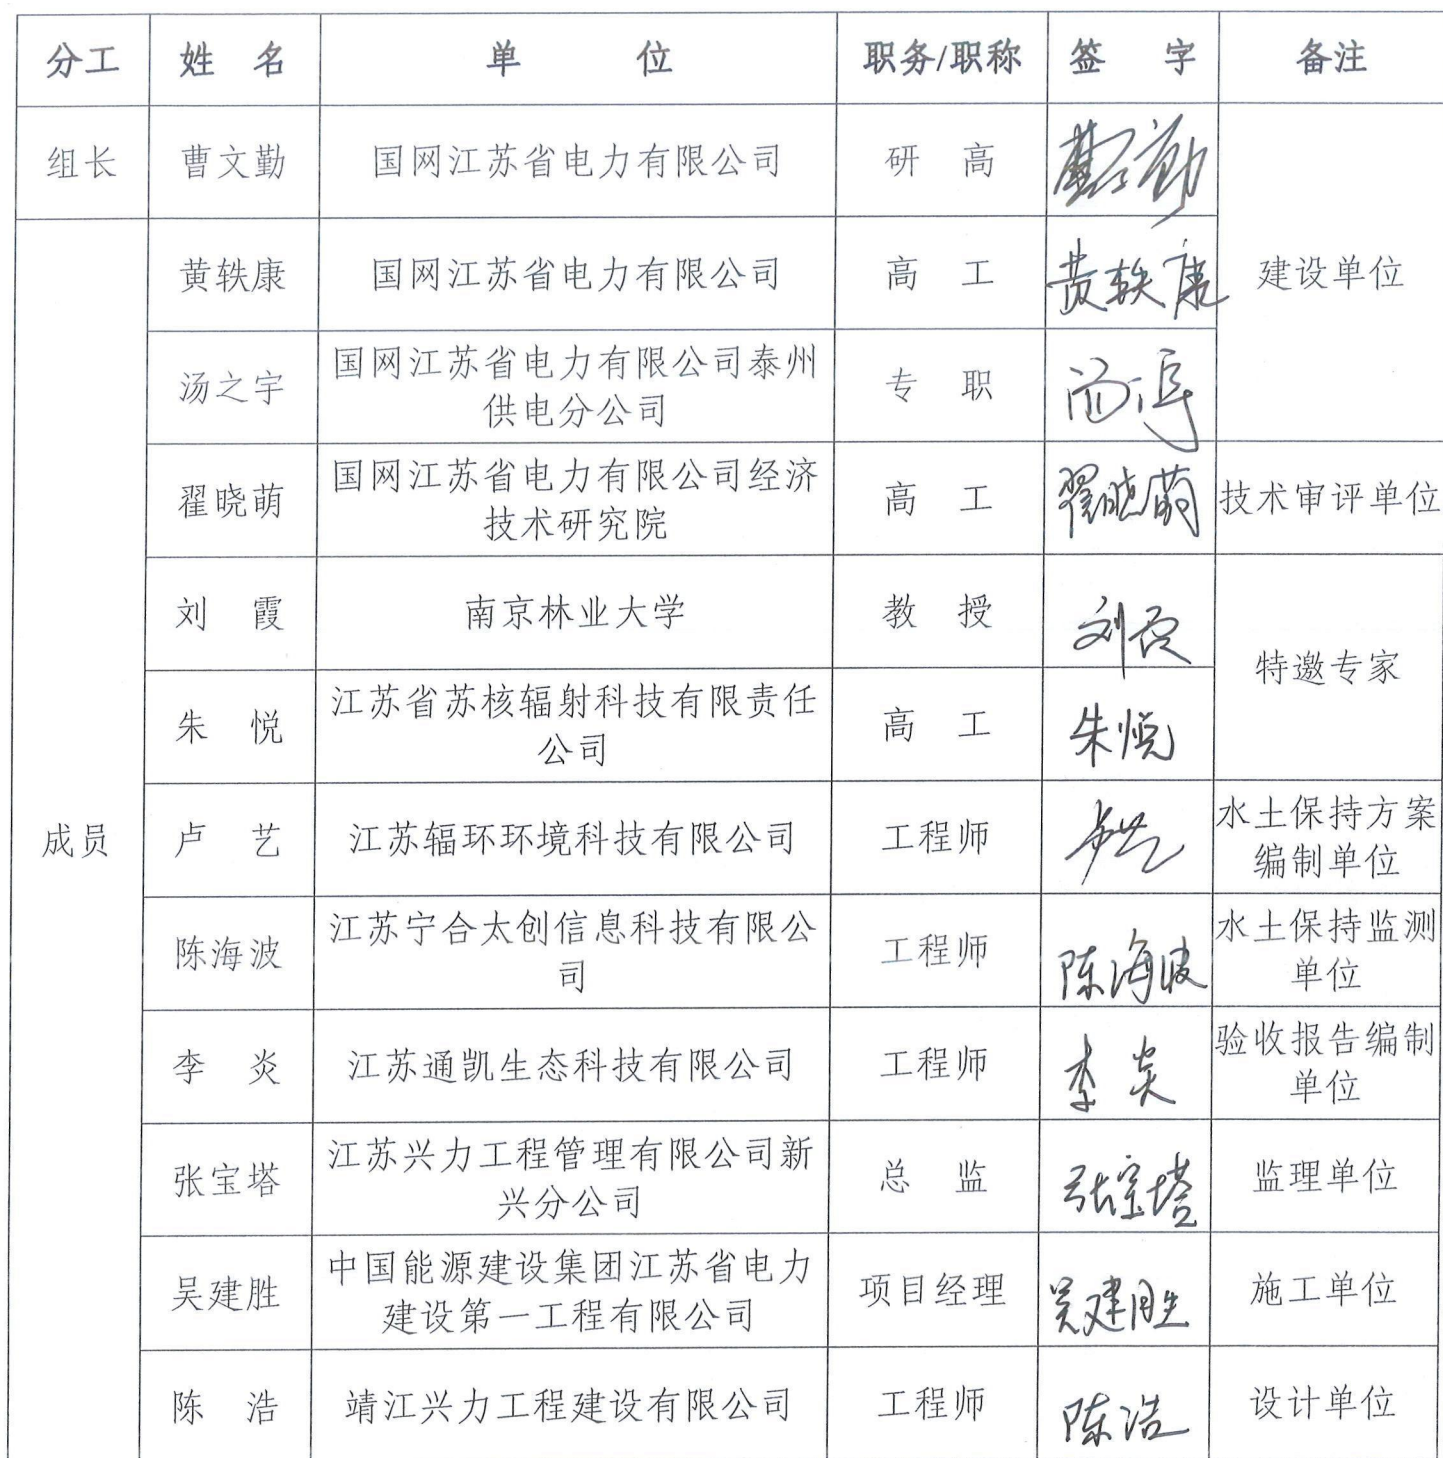 分工 姓 名 单 位 职务/职称 签 字 备注
组长 曹文勤 国网江苏省电力有限公司 研 高 曹文勤
黄轶康 国网江苏省电力有限公司 高 工 黄轶康 建设单位
汤之宇 国网江苏省电力有限公司泰州
供电分公司 专 职
翟晓萌 国网江苏省电力有限公司经济
技术研究院 高 工 翟晓萌 技术审评单位
刘 霞 南京林业大学 教 授 刘霞
特邀专家
朱 悦 江苏省苏核辐射科技有限责任
公司 高 工 朱悦
成员 卢 艺 江苏辐环环境科技有限公司 工程师 卢艺 水土保持方案
编制单位
陈海波 江苏宁合太创信息科技有限公
司 工程师 陈海波 水土保持监测
单位
李 炎 江苏通凯生态科技有限公司 工程师 李炎 验收报告编制
单位
张宝塔 江苏兴力工程管理有限公司新
兴分公司 总 监 张宝塔 监理单位
吴建胜 中国能源建设集团江苏省电力
建设第一工程有限公司 项目经理 吴建胜 施工单位
陈 浩 靖江兴力工程建设有限公司 工程师 陈浩 设计单位